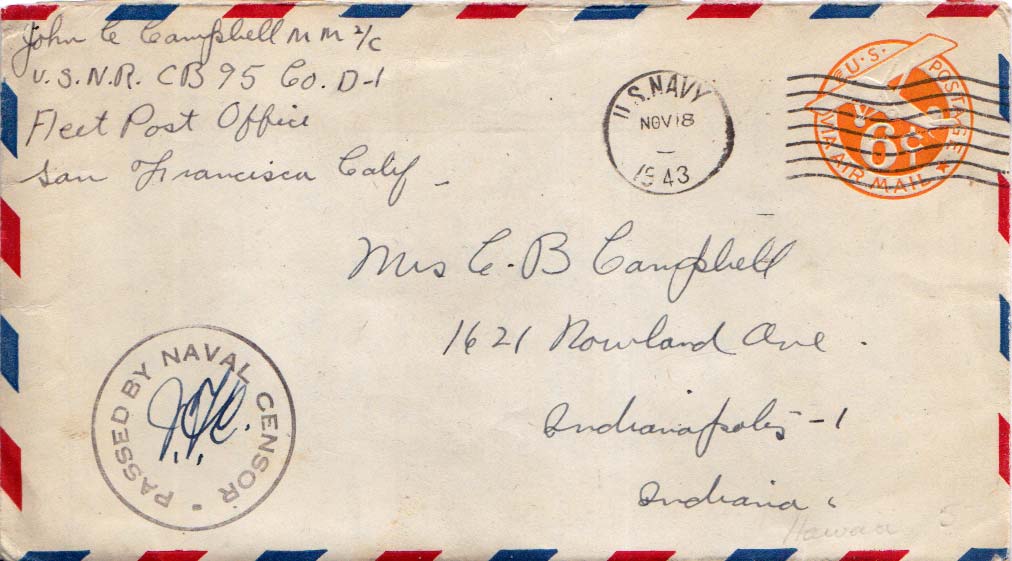 John C Campbell M M 2/C
U.S.N.R. CB 95 Co. D-1
Fleet Post Office
San Francisco Calif
U.S. NAVY
NOV 18
1943
U.S. POSTAGE
6¢
VIA AIR MAIL
Mrs C. B Campbell
1621 Nowland Ave.
Indianapolis - 1
Indiana
PASSED BY NAVAL CENSOR
Hawaii 5